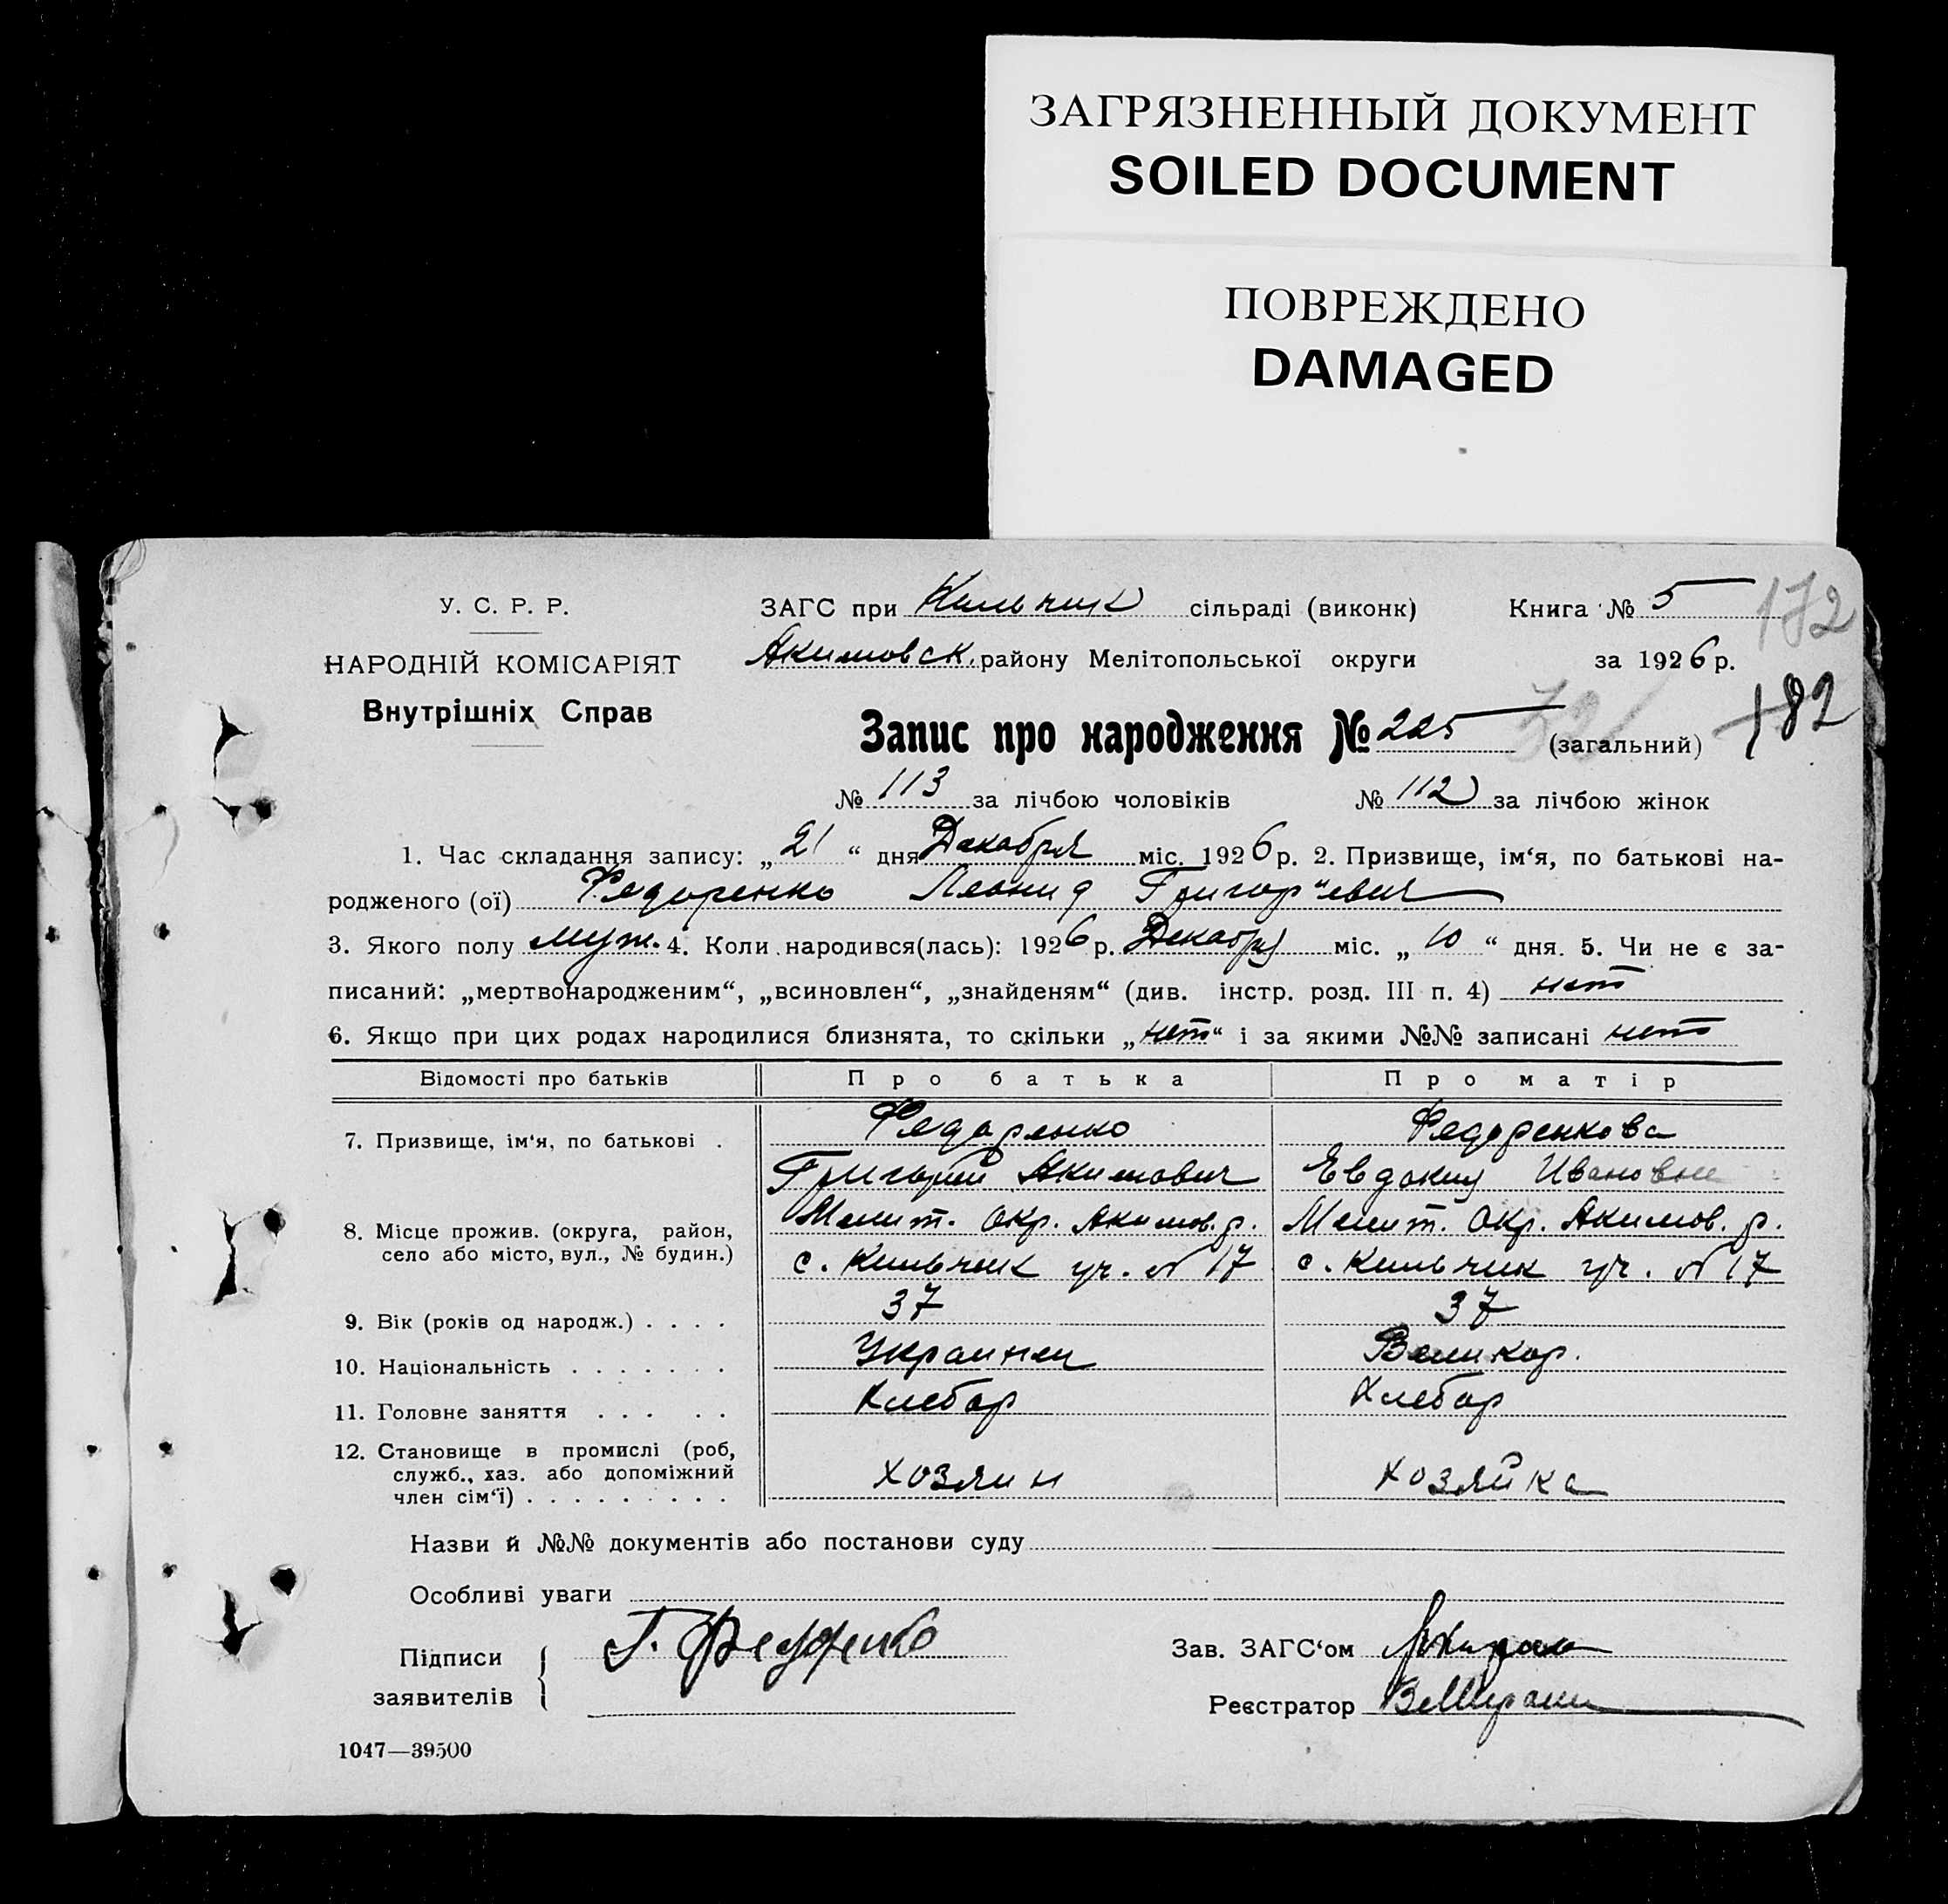 ЗАГРЯЗНЕННЫЙ ДОКУМЕНТ
SOILED DOCUMENT
ПОВРЕЖДЕНО
DAMAGED
У. С. Р. Р.
НАРОДНІЙ КОМІСАРІЯТ
Внутрішніх Справ
ЗАГС при Кильчик сільраді (виконк)
Акимовск. району Мелітопольської округи
Книга № 5
172
за 1926 р.
182
Запис про народження № 225 (загальний)
№ 113 за лічбою чоловіків № 112 за лічбою жінок
1. Час складання запису: „21“ дня Декабря міс. 1926 р. 2. Призвище, ім‘я, по батькові на-
родженого (ої) Федоренко Леонид Григорьевич
3. Якого полу муж. 4. Коли народився(лась): 1926 р. Декабря міс. „10“ дня. 5. Чи не є за-
писаний: „мертвонародженим“, „всиновлен“, „знайденям“ (див. інстр. розд. III п. 4) нет
6. Якщо при цих родах народилися близнята, то скільки „нет“ і за якими №№ записані нет
Відомості про батьків Про батька Про матір
7. Призвище, ім‘я, по батькові . Федоренко Федоренкова
Григорий Акимович Евдокия Ивановна
8. Місце прожив. (округа, район, Мелит. Окр. Акимов. р. Мелит. Окр. Акимов. р.
село або місто, вул., № будин.) с. Кильчик уч. № 17 с. Кильчик уч. № 17
9. Вік (років од народж.) . . . . 37 37
10. Національність . . . . . . . Украинец Великор.
11. Головне заняття . . . . . Хлебор Хлебор
12. Становище в промислі (роб,
служб., хаз. або допоміжний хозяин хозяйка
член сім‘ї) . . . . . . . . .
Назви й №№ документів або постанови суду
Особливі уваги
Підписи
заявителів
Г. Федоренко
Зав. ЗАГС‘ом
Реєстратор
1047—39500